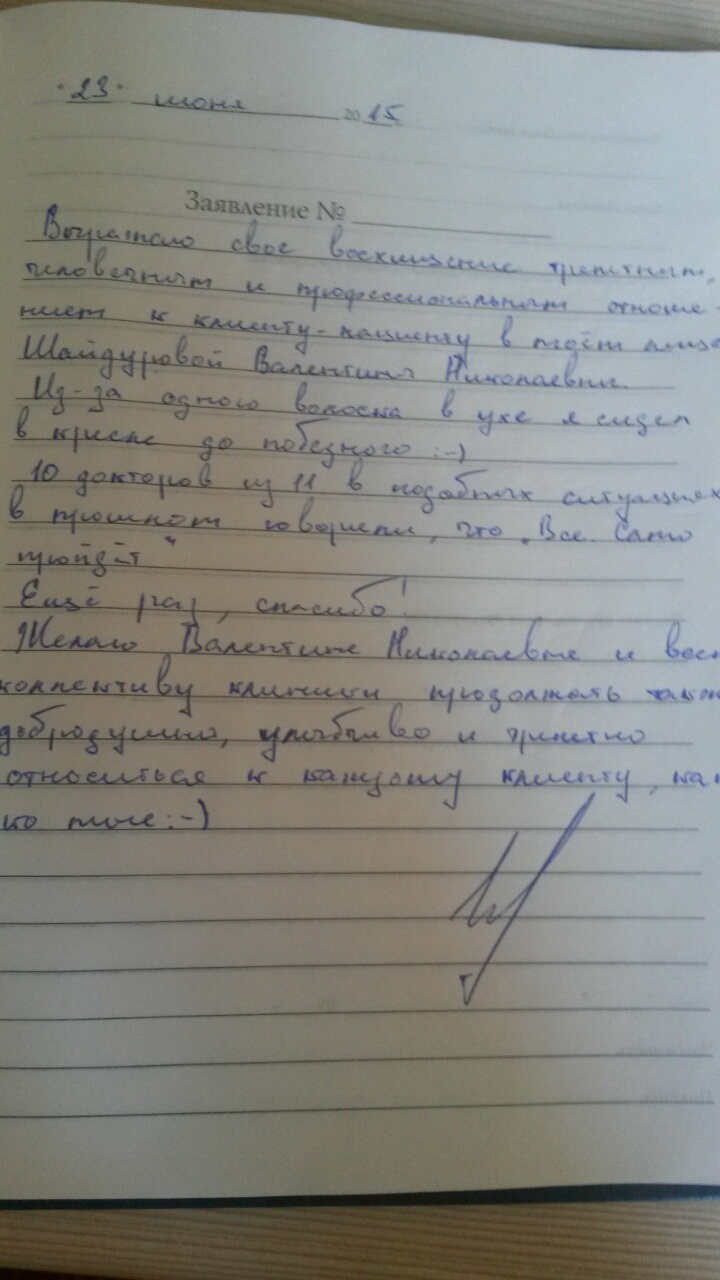 "23" июня 2015
Заявление №
Выражаю свое восхищение трепетным,
человечным и профессиональным отноше-
нием к клиенту-пациенту в моём лице
Шайдуровой Валентины Николаевны.
Из-за одного волоска в ухе я сидел
в кресле до победного :-)
10 докторов из 11 в подобных ситуациях
в прошлом говорили, что "Все само
пройдёт"
Ещё раз, спасибо!
Желаю Валентине Николаевне и всем
коллективу клиники продолжать также
добродушно, улыбчиво и трепетно
относиться к каждому клиенту, как
ко мне :-)